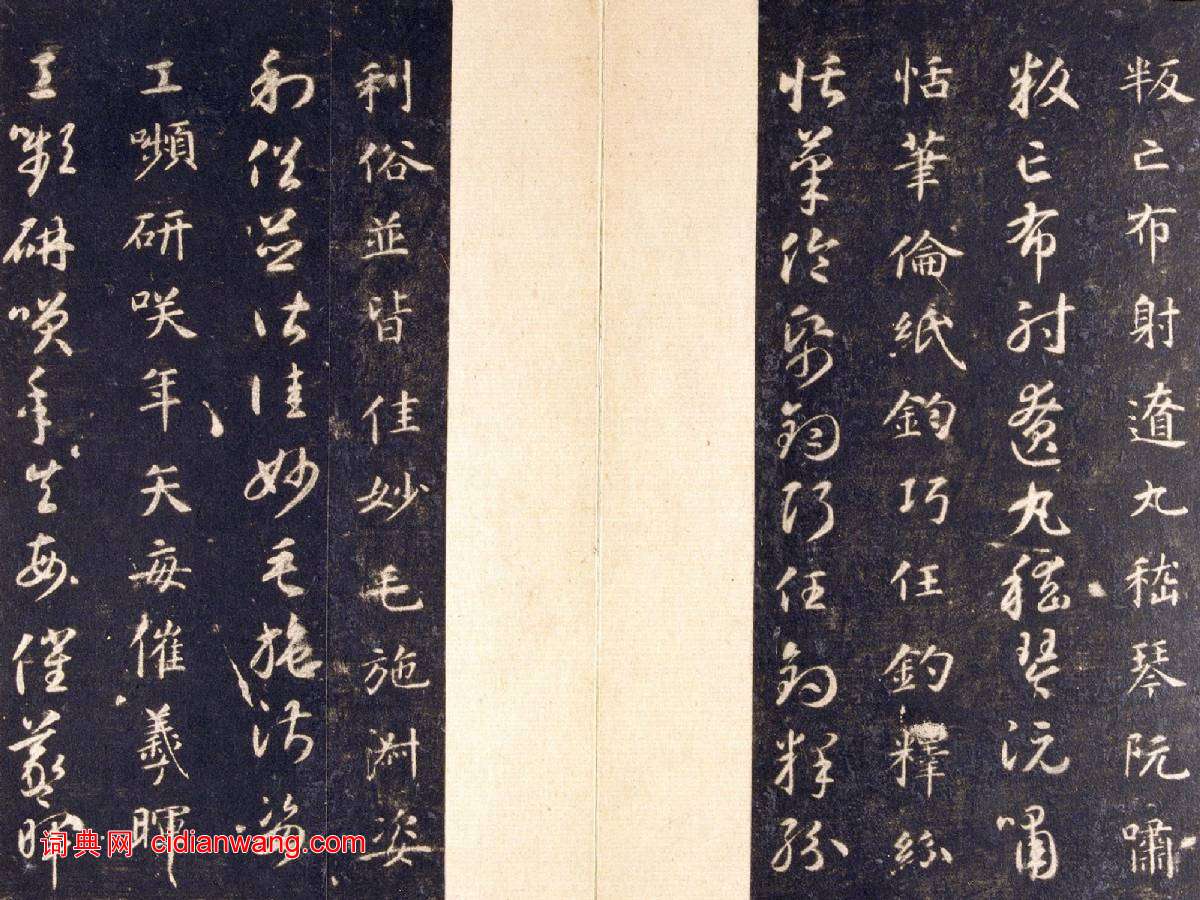 叛亡布射遼丸嵇琴阮嘯
叛亡布射遼丸嵇琴阮嘯
恬筆倫紙鈞巧任釣釋紛
恬筆倫紙鈞巧任釣釋紛
利俗並皆佳妙毛施淑姿
利俗並皆佳妙毛施淑姿
工嚬研咲年矢每催羲暉
工嚬研咲年矢每催羲暉
词典网：cidianwang.com